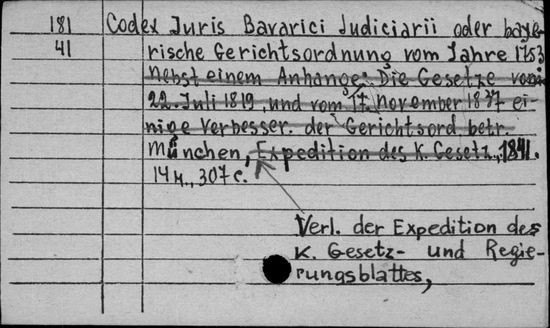 181 Codex Juris Bavarici Judiciarii oder baye-
41 rische Gerichtsordnung vom Jahre 1753
nebst einem Anhange: Die Gesetze vom
22. Juli 1819, und vom 17. November 1837 ei-
nige Verbesser. der Gerichtsord. betr.
München, Expedition des K. Gesetz., 1841.
14 н., 307 с.
Verl. der Expedition des
K. Gesetz- und Regie-
rungsblattes,